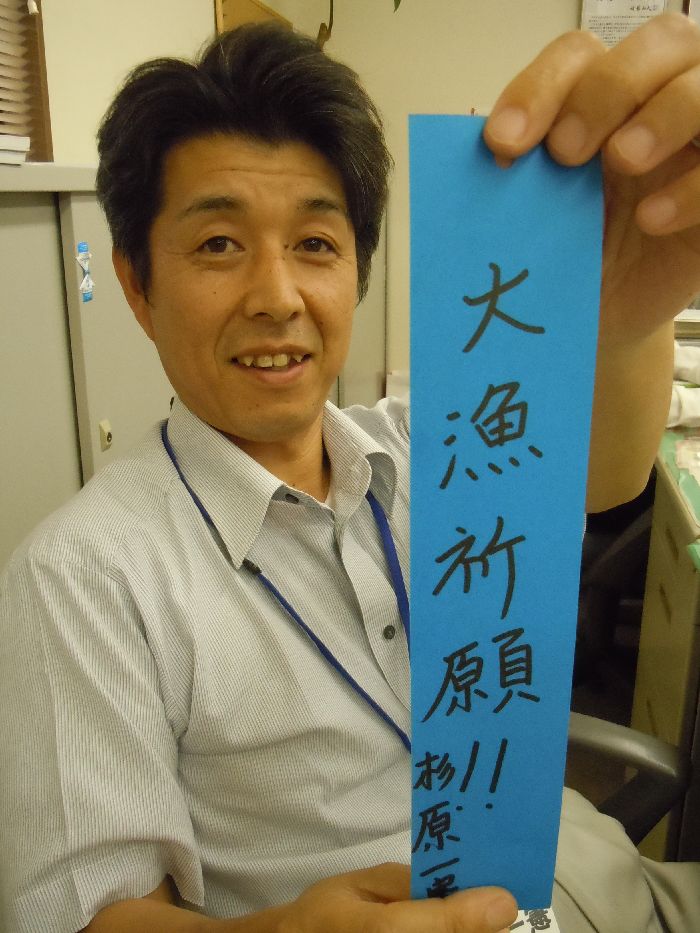 大漁祈願!!
杉原一